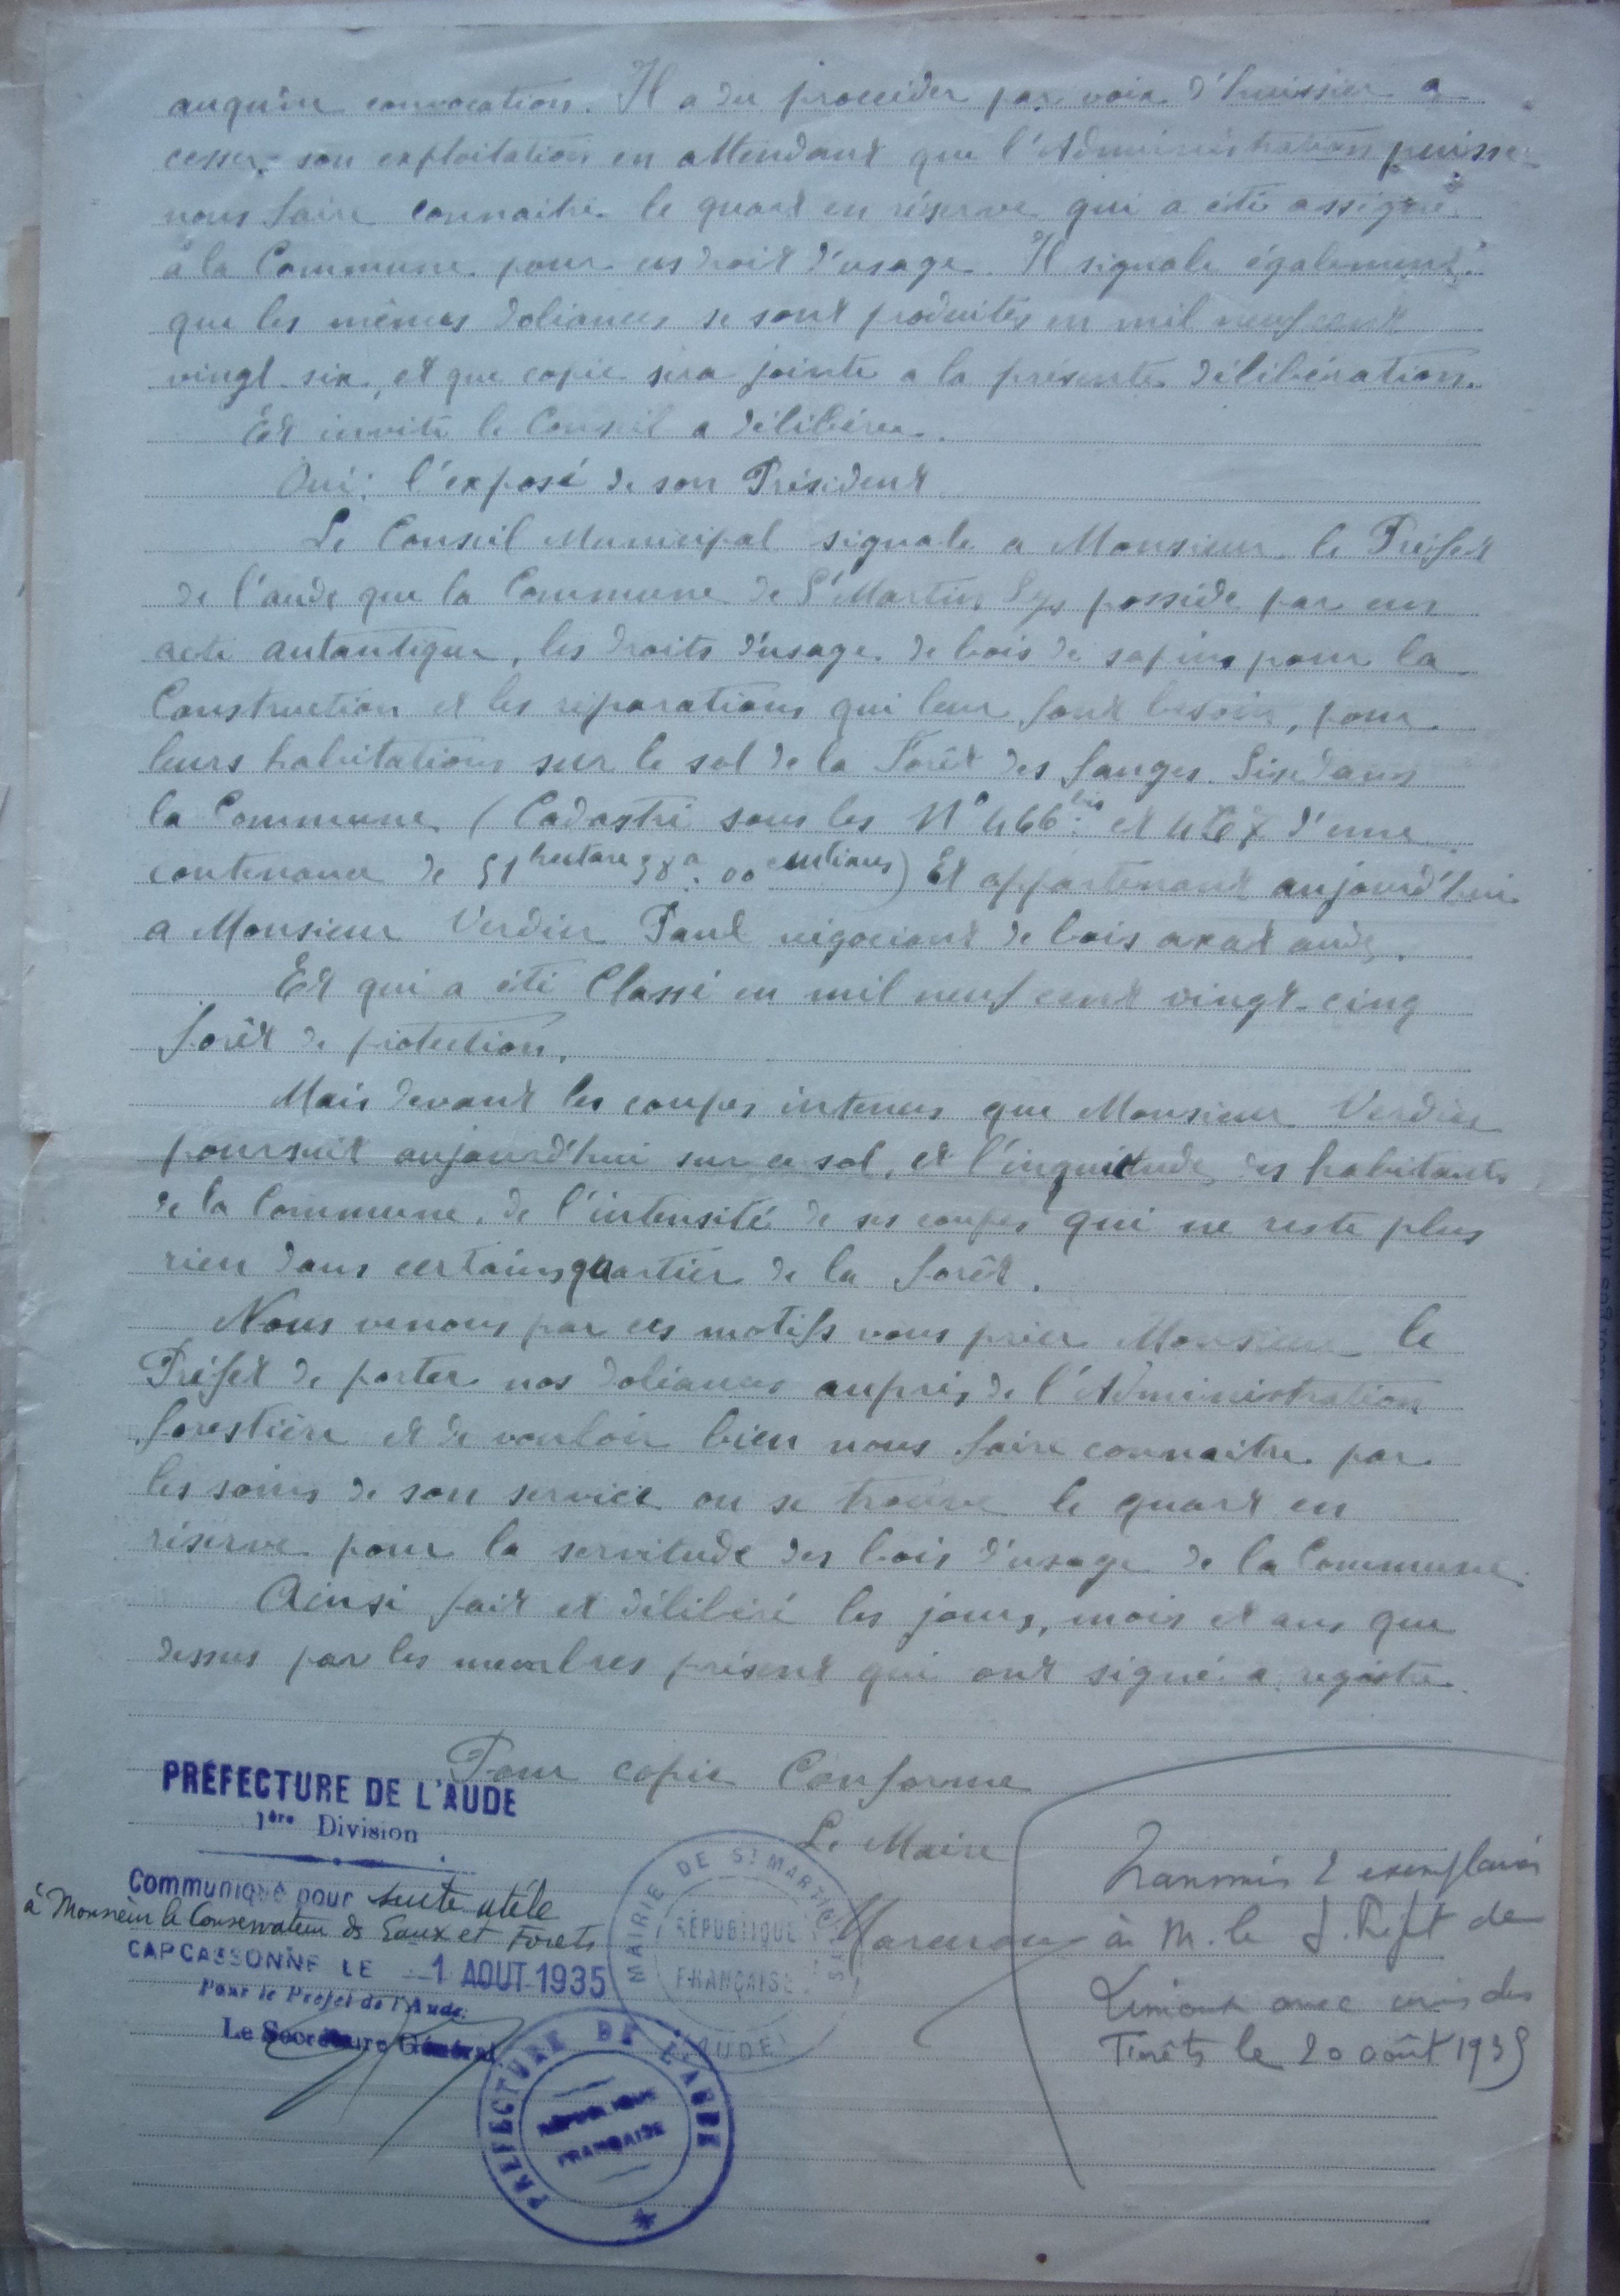 auqu'une convocation. Il a du proceider par voie d'huissier a
cesser son exploitation en attendant que l'Administration puisse
nous faire connaitre le quart en réserve qui a été assigné
à la Commune pour ces droit d'usage. Il signale également
que les mêmes doliances se sont produites en mil neuf cent
vingt six, et que copie sera jointe a la présente délibération.
Et invite le Conseil a délibérer.
Oui: l'exposé de son Président
Le Conseil Municipal signale a Monsieur le Préfet
de l'aude que la Commune de St Martin Lys posside par un
acte autantique, les droits d'usage de bois de sapins pour la
Construction et les réparations qui leur font besoin, pour
leurs habitations sur le sol de la Forêt des fanges. Sise dans
la Commune (Cadastré sous les N° 466 bis et 467 d'une
contenance de 51 hectare 38 a. 00 centiares) Et appartenant aujourd'hui
a Monsieur Verdier Paul négociant de bois axat aude.
Et qui a été Classé en mil neuf cent vingt-cinq
forêt de protection.
Mais devant les coupes intenses que Monsieur Verdier
poursuit aujourd'hui sur ce sol, et l'inquiétude des habitants
de la Commune, de l'intensité de ses coupes qui ne reste plus
rien dans certains quartier de la forêt.
Nous venons par ces motifs vous prier Monsieur le
Préfet de porter nos doliances auprès de l'Administration
forestière et de vouloir bien nous faire connaitre par
les soins de son service ou se trouve le quart en
réserve pour la servitude des bois d'usage de la Commune.
Ainsi fait et délibéré les jours, mois et ans que
dessus par les membres présent qui ont signé a registre.
Pour copie Conforme
Le Maire
PRÉFECTURE DE L'AUDE
1ère Division
Communiqué pour suite utile
à Monsieur le Conservateur des Eaux et Forêts
CARCASSONNE LE 1 AOUT 1935
Pour le Préfet de l'Aude:
Le Secrétaire Général
MAIRIE DE ST MARTIN LYS
RÉPUBLIQUE
FRANÇAISE
(AUDE)
PRÉFECTURE DE L'AUDE
RÉPUBLIQUE
FRANÇAISE
Transmis 2 exemplaires
à M. le S. Préfet de
Limoux avec avis des
Forêts le 20 août 1935